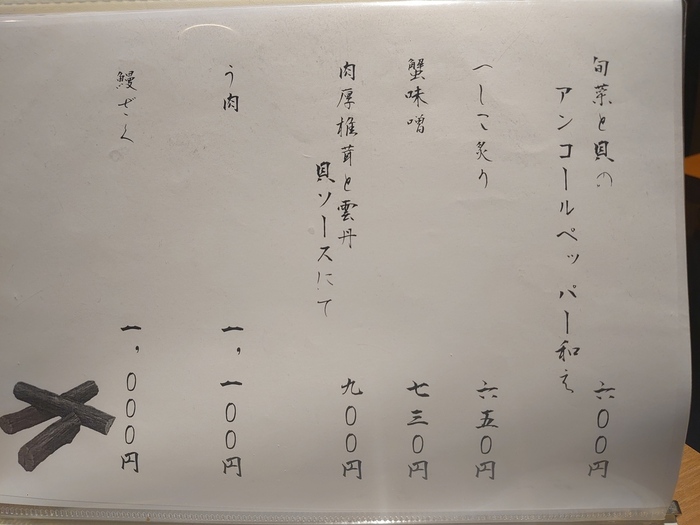 旬菜と貝の
アンコールペッパー和え
六〇〇円
へしこ炙り
六五〇円
蟹味噌
七三〇円
肉厚椎茸と雲丹
貝ソースにて
九〇〇円
う肉
一,一〇〇円
鰻ざく
一,〇〇〇円